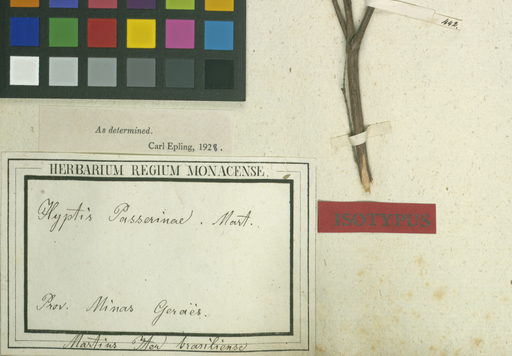 442.
As determined.
Carl Epling, 1928.
HERBARIUM REGIUM MONACENSE.
ISOTYPUS
Hyptis Passerinae. Mart.
Prov. Minas Geraës.
Martius Iter brasiliense